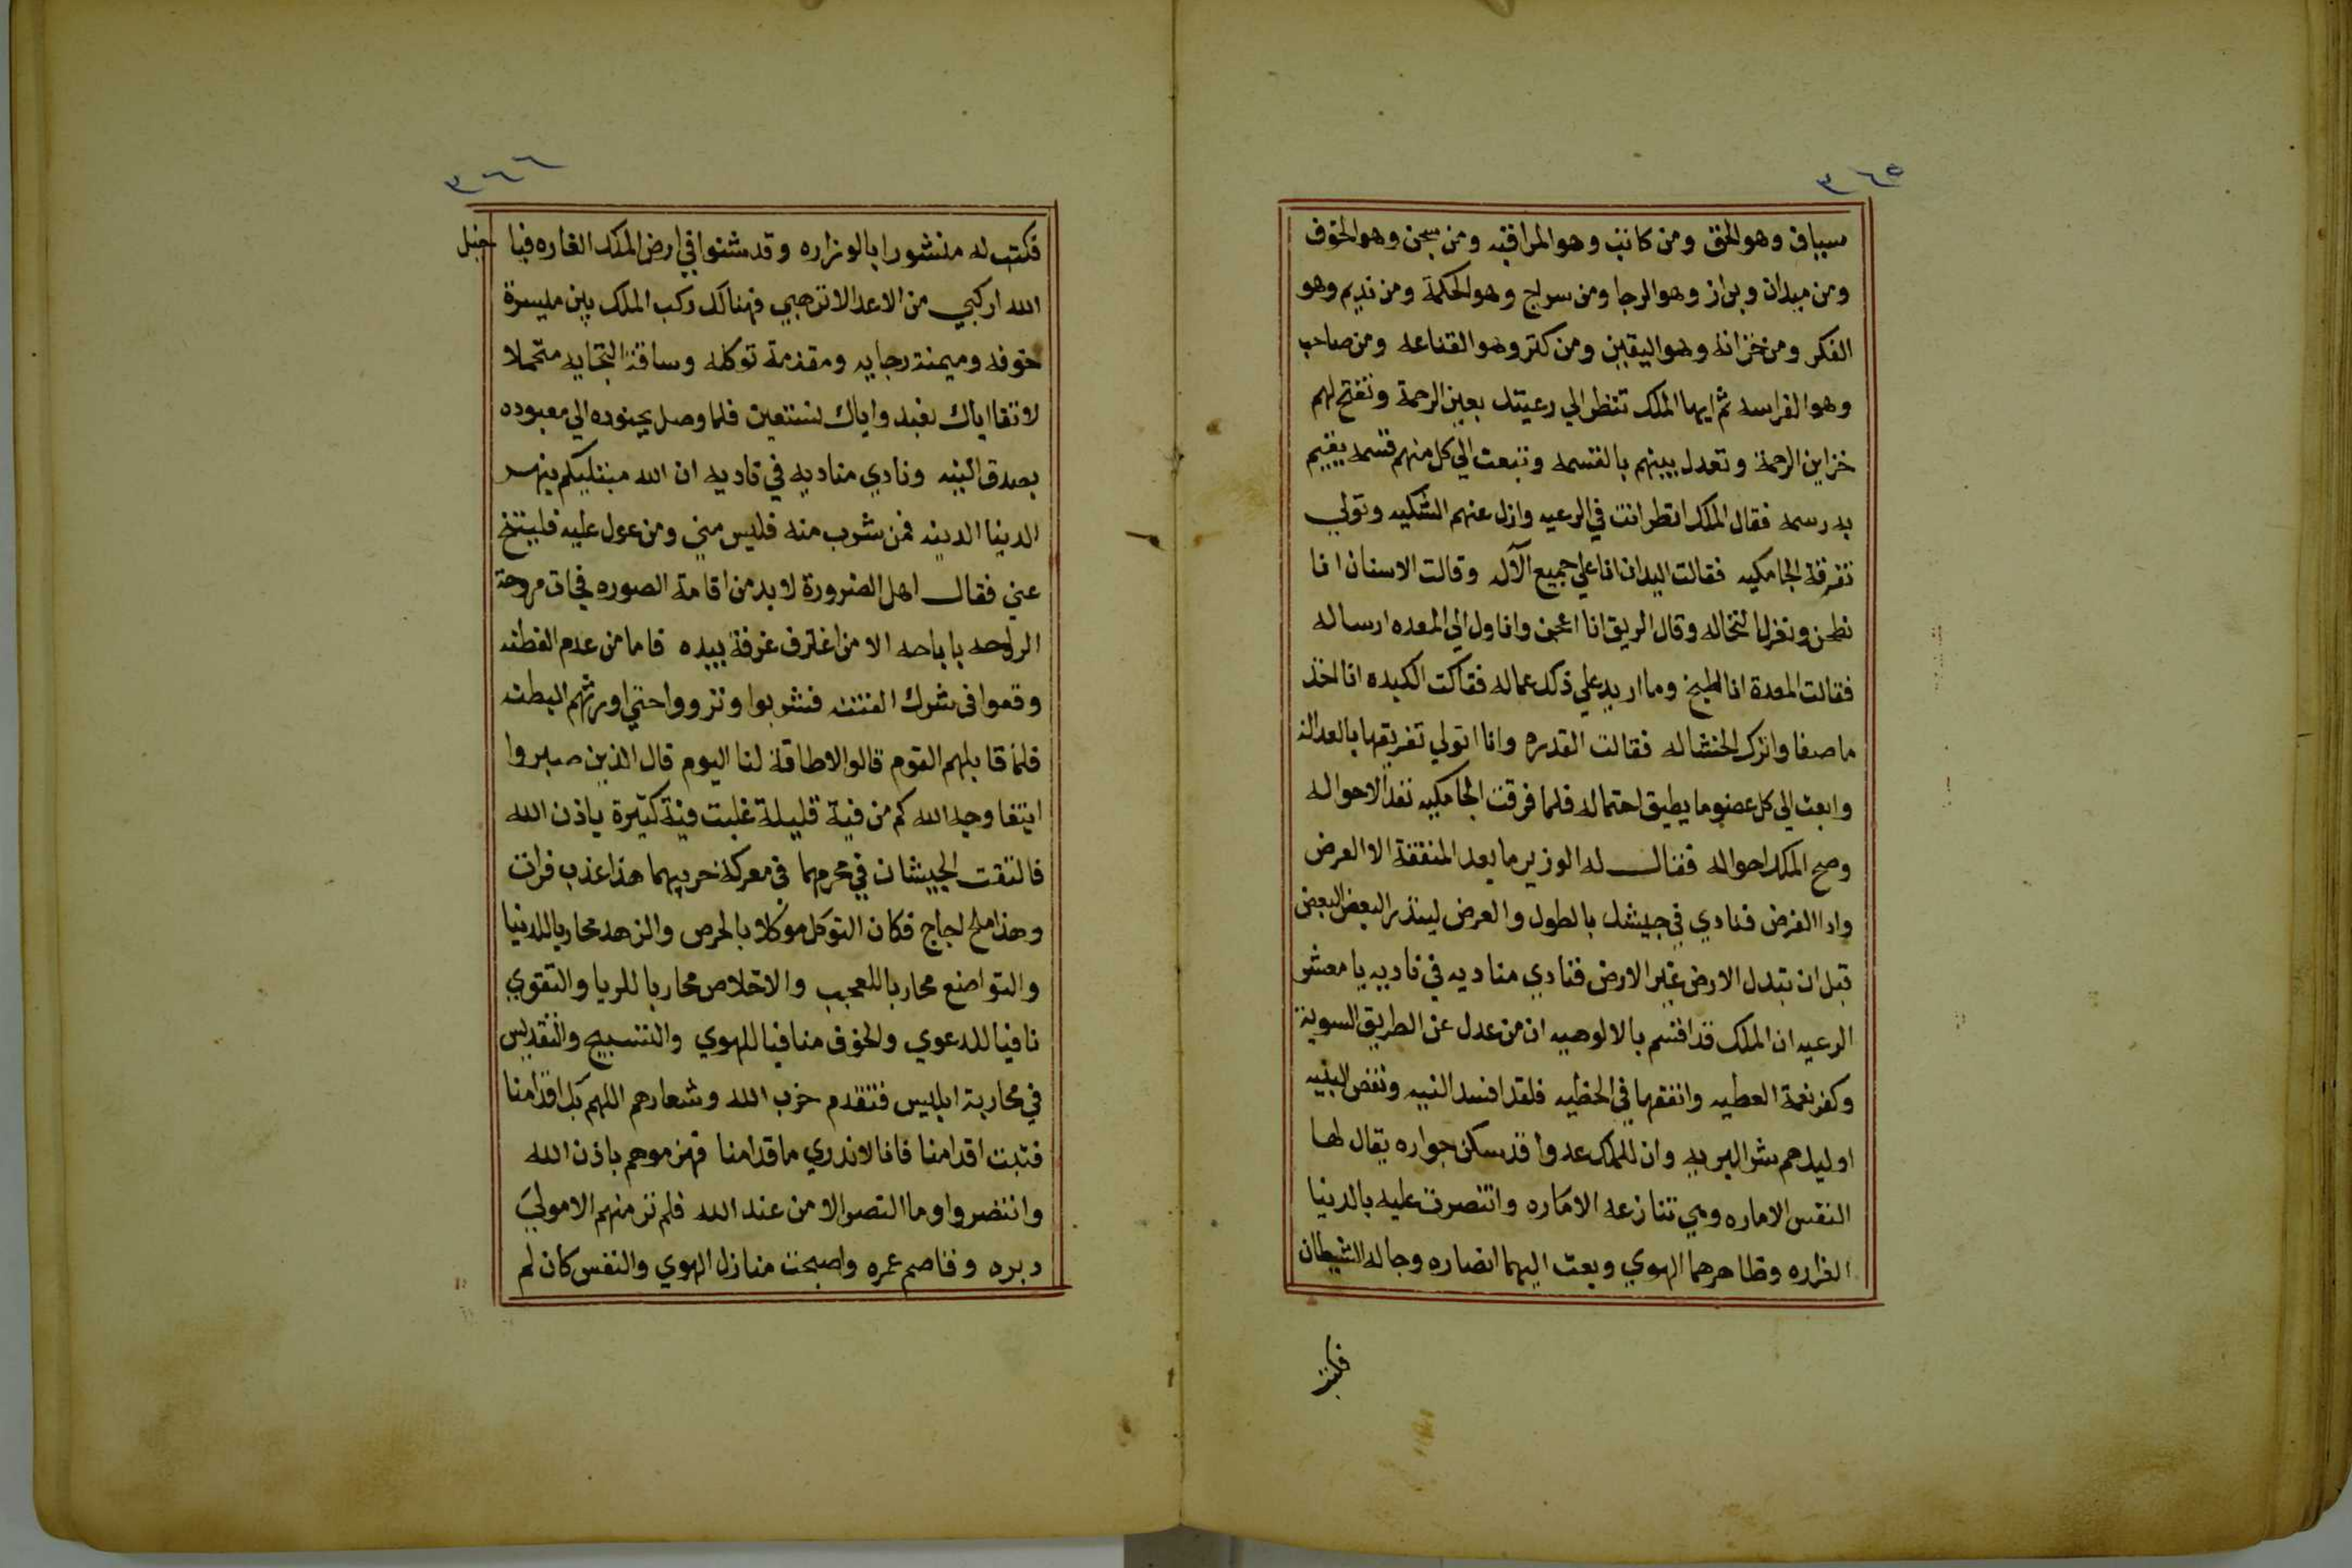 ٣٦٥
سياف وهو الحق ومن كاتب وهو المراقبه ومن سجن وهو الخوف
ومن ميدان وبراز وهو الرجا ومن سراج وهو الحكمة ومن نديم وهو
الفكر ومن خزانة وهو اليقين ومن كنز وهو القناعه ومن صاحب
وهو الفراسه ثم ايها الملك تنظر الي رعيتك بعين الرحمة وتفتح لهم
خزاين الرحمة وتعدل بينهم بالقسمه وتبعث الي كل منهم قسمه يقيم
به رسمه فقال الملك انظر انت في الرعيه وازل عنهم الشكيه وتولي
تفرقة الجامكيه فقالت اليدان انا علي جميع الآله وقالت الاسنان انا
نطحن ونغزل النخاله وقال الريق انا اعجن واناول الي المعده ارساله
فقالت المعدة انا اطبخ وما اريد علي ذلك عماله فقالت الكبده انا اخذ
ما صفا واترك الحشاله فقالت القدره وانا اتولي تفريقها بالعداله
وابعث الي كل عضو ما يطيق احتماله فلما فرقت الجامكيه نفذ الاحواله
وصح الملك احواله فقال له الوزير ما بعد النفقة الا العرض
وادا الفرض فنادي في جيشك بالطول والعرض لينذر البعض البعض
قبل ان تبدل الارض غير الارض فنادي مناديه في ناديه يا معشر
الرعيه ان الملك قد اقسم بالالوهيه ان من عدل عن الطريق السوية
وكفر نعمة العطيه وانفقها في الخطيه فلقد افسد النيه ونقض البنيه
اوليك هم شر البريه وان للملك عدوا قد سكن جواره يقال لها
النفس الاماره وهي تنازعه الاماره وانتصرت عليه بالدنيا
الغراره وظاهرهما الهوي وبعث اليهما انصاره وجا له الشيطان
فكتب
٣٦٦
فكتب له منشورا بالوزاره وقد شنوا في ارض الملك الغاره فيا خيل
الله اركبي من الاعدا لا ترهبي فهنالك ركب الملك بين ميسرة
خوفه وميمنة رجايه ومقدمة توكله وساقة التجايه متحملا
لا تقا اياك نعبد واياك نستعين فلما وصل بجنوده الي معبوده
بصدق النيه ونادي مناديه في ناديه ان الله مبتليكم بنهر
الدنيا الدنيه فمن شرب منه فليس مني ومن عول عليه فليتنح
عني فقال اهل الضرورة لا بد من اقامة الصوره فجات مروحة
الراحه باباحه الا من اغترف غرفة بيده فاما من عدم الفطنه
وقعوا في شرك الفتنه فشربوا وتزووا حتي اورثهم البطنه
فلما قابلهم القوم قالوا لا طاقة لنا اليوم قال الذين صبروا
ابتغا وجه الله كم من فية قليلة غلبت فية كثيرة باذن الله
فالتقت الجيشان في محرمهما في معركة حربهما هذا عذب فرات
وهذا ملح اجاج فكان التوكل موكلا بالحرص والزهد محاربا للدنيا
والتواضع محاربا للعجب والاخلاص محاربا للريا والتقوي
نافيا للدعوي والخوف منافيا للهوي والتسبيح والتقديس
في محاربة ابليس فتقدم حزب الله وشعارهم اللهم بك اقدامنا
فثبت اقدامنا فانا لا ندري ما قدامنا فهزموهم باذن الله
وانتصروا وما النصر الا من عند الله فلم تر منهم الا موليَ
دبره وقاصم عمره واصبحت منازل الهوي والنفس كان لم